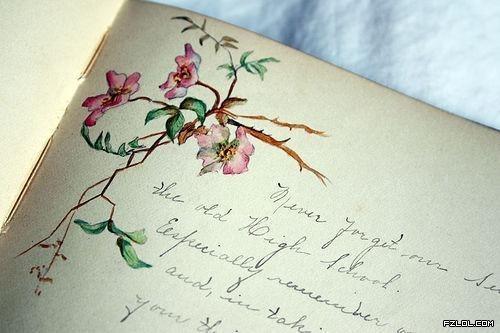 Never forget our
the old High School.
Especially remember
and, in
your
FZLOL.COM